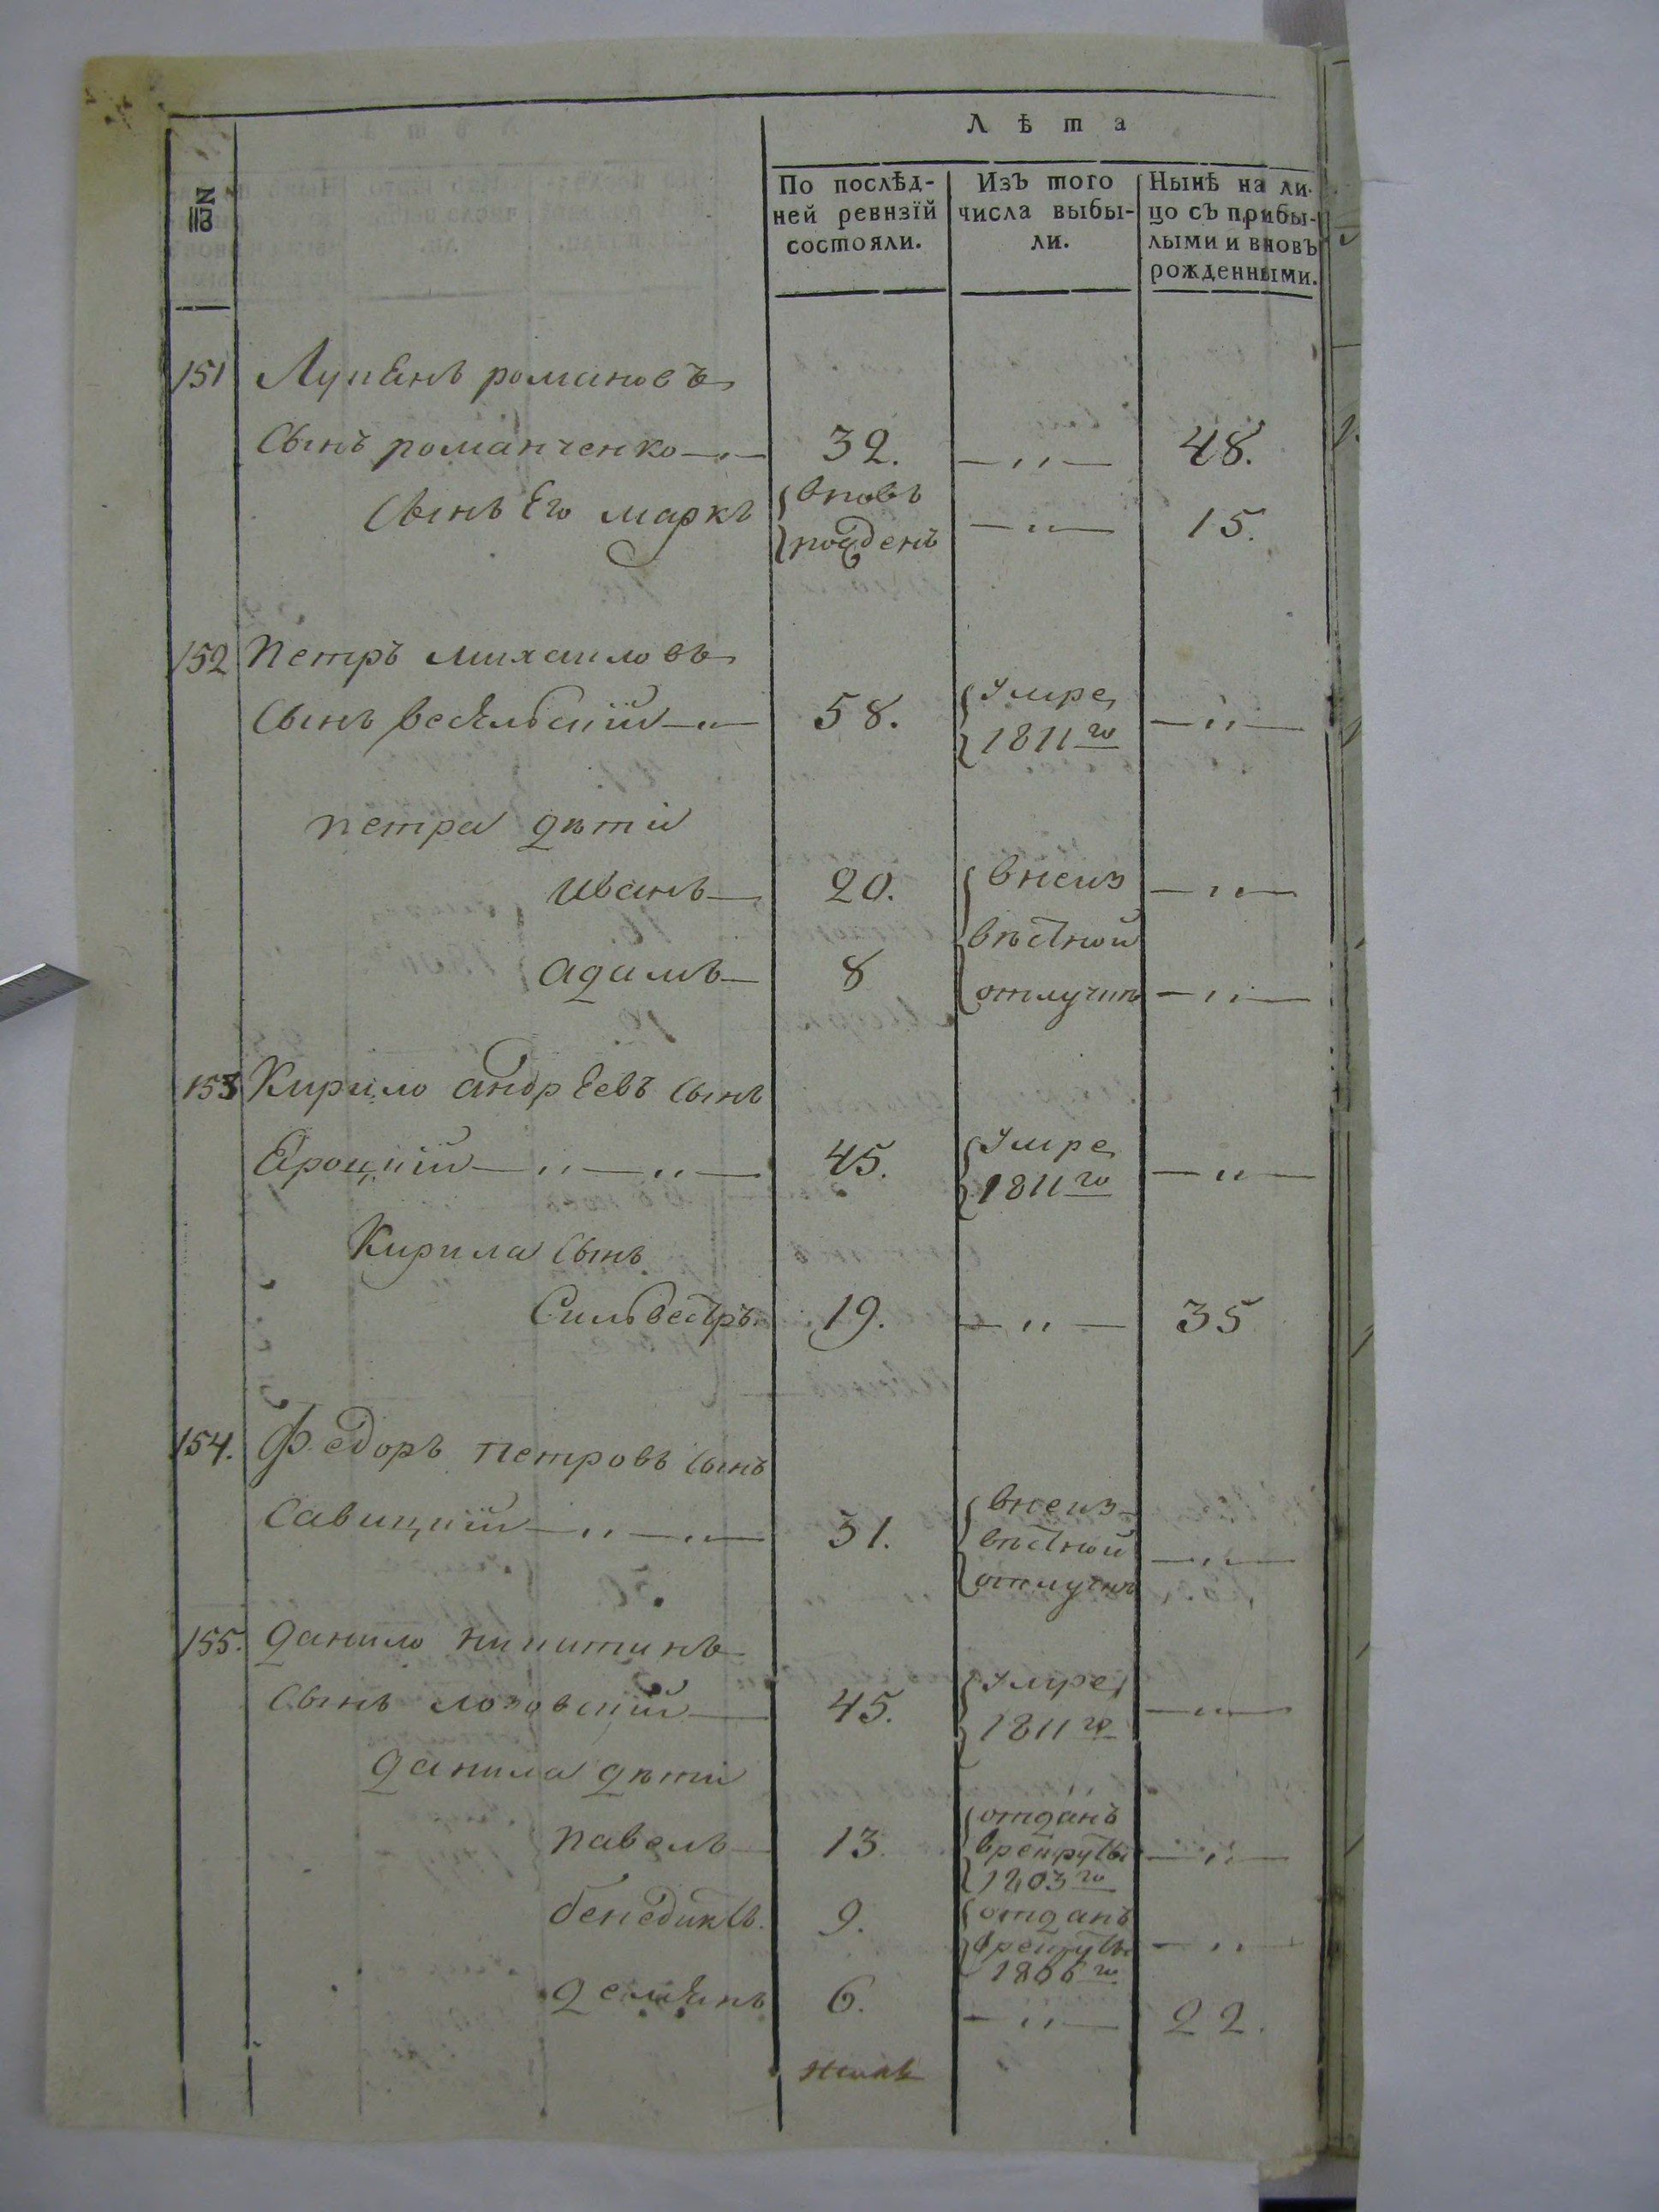 Лѣта
№
По послѣд-
ней ревизїй
состояли.
Изъ того
числа выбы-
ли.
Нынѣ на ли-
цо съ прибы-
лыми и вновъ
рожденными.
151 Лупянъ романовъ
Сынъ романченко 32. 48.
Сынъ Его маркъ вновь рожденъ 15.
152 Петръ михаиловъ
Сынъ 58. Умре 1811го
петра дѣти
иванъ 20. внеиз
вѣстной
адамъ 8 отлучкѣ
153 Кирило андрѣевъ Сынъ
Яроцкїй 45. Умре 1811го
Кирила Сынъ
Сильвестръ 19. 35
154. Федоръ петровъ Сынъ
Савицкїй 31. внеиз-
вѣстной
отлучкѣ
155. данило никитинъ
Сынъ лозовскїй 45. Умре 1811го
данила дѣти
павелъ 13. отданъ
врекруты
1803го
бенедиктъ. 9. отданъ
врекруты
1806го
демянъ 6. 22.